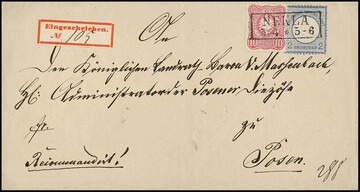 Eingeschrieben.
№ 105
NEKLA
5-6
An
Den Königlichen Landrath Herrn v. Massenbach,
Administrator der Posener Diözese
zu
Recommandirt!
Posen.